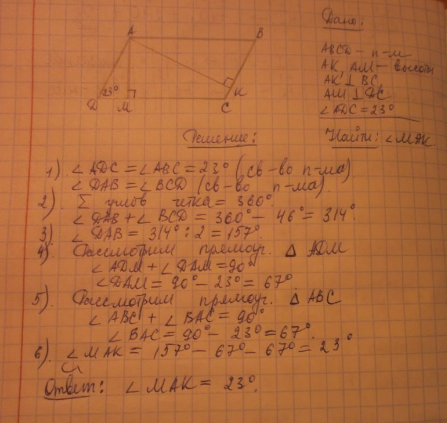 A B
23°
D M C K
Дано:
ABCD - п-м
AK, AM - высоты
AK ⊥ BC
AM ⊥ DC
∠ADC = 23°
Найти: ∠MAK
Решение:
1) ∠ADC = ∠ABC = 23° (св-во п-ма)
∠DAB = ∠BCD (св-во п-ма).
2) Σ углов = 360°.
∠DAB + ∠BCD = 360° - 46° = 314°
3) ∠DAB = 314° : 2 = 157°.
4) Рассмотрим прямоуг. Δ ADM
∠ADM + ∠DAM = 90°
∠DAM = 90° - 23° = 67°
5). Рассмотрим прямоуг. Δ ABC
∠ABC + ∠BAC = 90°
∠BAC = 90° - 23° = 67°.
6) ∠MAK = 157° - 67° - 67° = 23°
Ответ: ∠MAK = 23°.